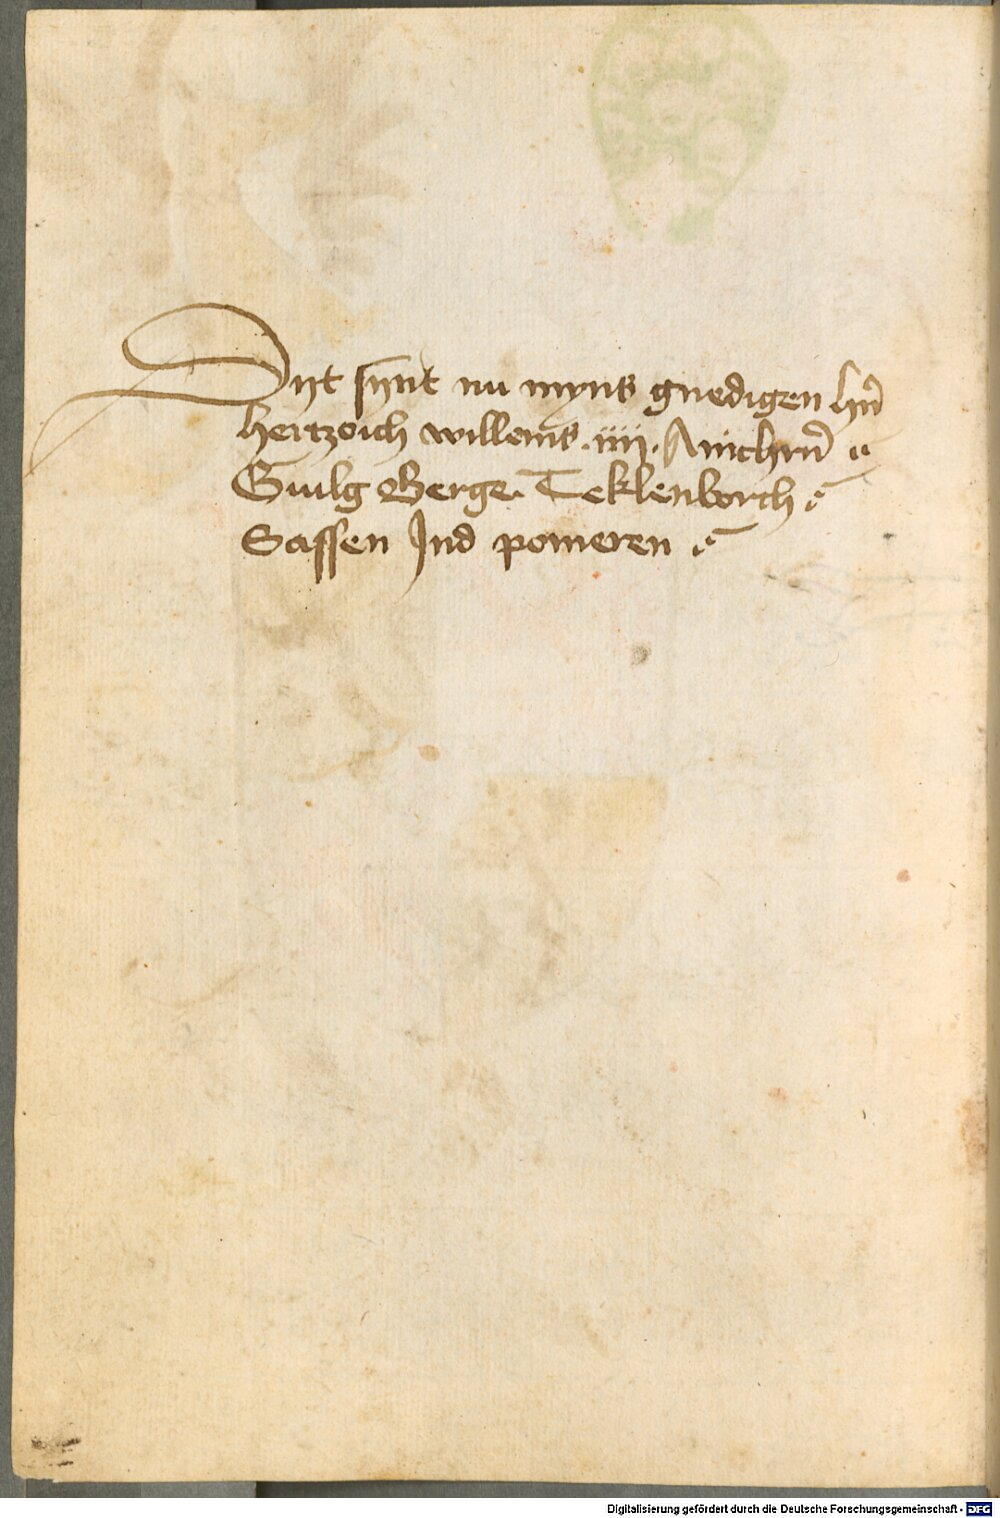 Dyt synt nu myns gnedigen hn̄
hertzoich willems .iiij. Anichrn̄ ::
Guilg Berge. Teklenborch :
Sassen Jnd pomeren :
Digitalisierung gefördert durch die Deutsche Forschungsgemeinschaft - DFG